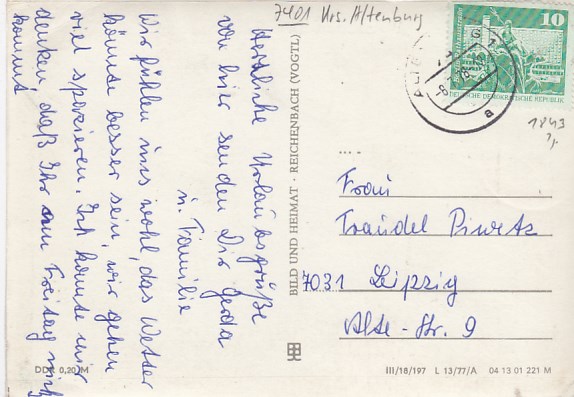 7401 Krs. Altenburg
10
DEUTSCHE DEMOKRATISCHE REPUBLIK
a
1843
Herzliche Urlaubsgrüße
von hier senden Dir Gerda
u. Familie
Wir fühlen uns wohl, das Wetter
könnte besser sein, wir gehen
viel spazieren. Ich konnte mir
denken, daß Ihr am Freitag nicht
kommt
BILD UND HEIMAT · REICHENBACH (VOGTL)
Frau
Traudel Piwetz
7031 Leipzig
Alte-Str. 9
DDR 0,20 M
III/18/197 L 13/77/A 04 13 01 221 M